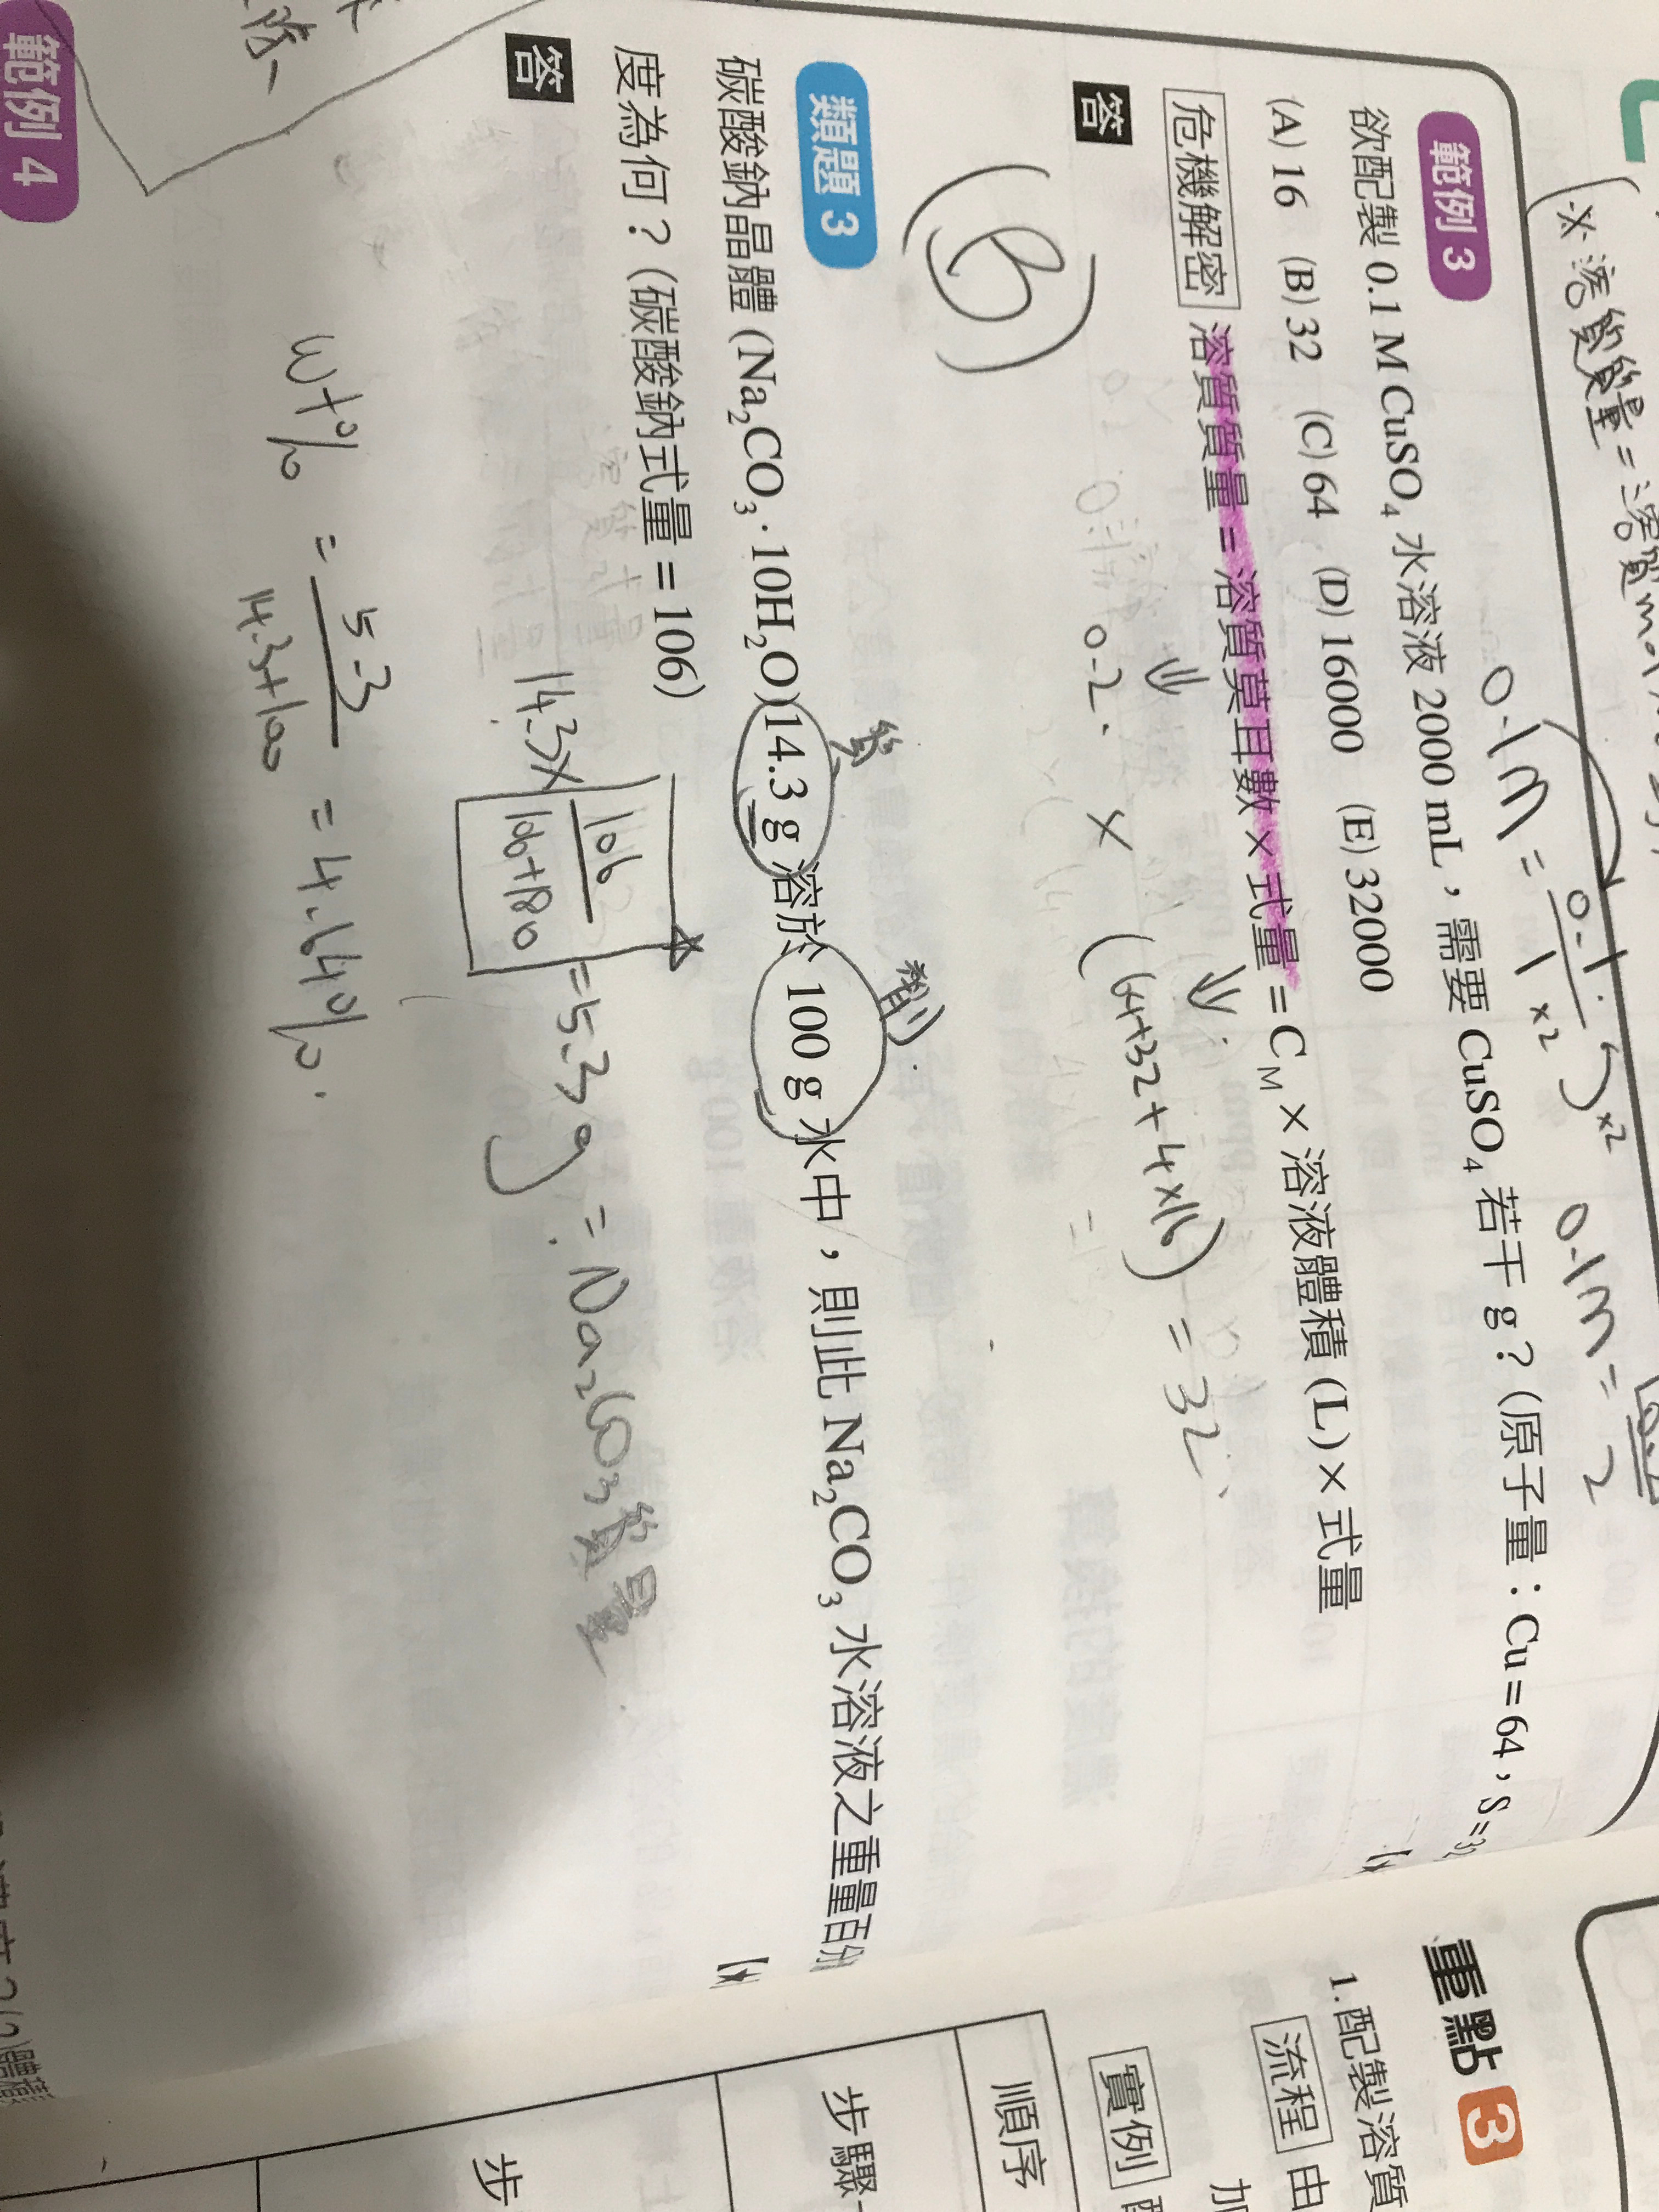 ※溶質質量=溶質mol
0.1M = 0.1/1 ×2 ×2
0.1M = 2
範例 3
欲配製 0.1 M CuSO₄ 水溶液 2000 mL，需要 CuSO₄ 若干 g？(原子量：Cu=64，S=32
(A) 16 (B) 32 (C) 64 (D) 16000 (E) 32000
危機解密 溶質質量=溶質莫耳數×式量=C_M×溶液體積 (L)×式量
答
0.2 × (64+32+4×16) = 32
(B)
類題 3
質 劑
碳酸鈉晶體 (Na₂CO₃·10H₂O)14.3 g 溶於 100 g 水中，則此 Na₂CO₃ 水溶液之重量百分
度為何？(碳酸鈉式量=106)
答
14.3× 106/106+180 =5.3g = Na₂CO₃質量
wt% = 5.3/14.3+100 = 4.64%.
範例 4
重點 3
1.配製溶質
流程 由
加
實例
順序
步驟
步